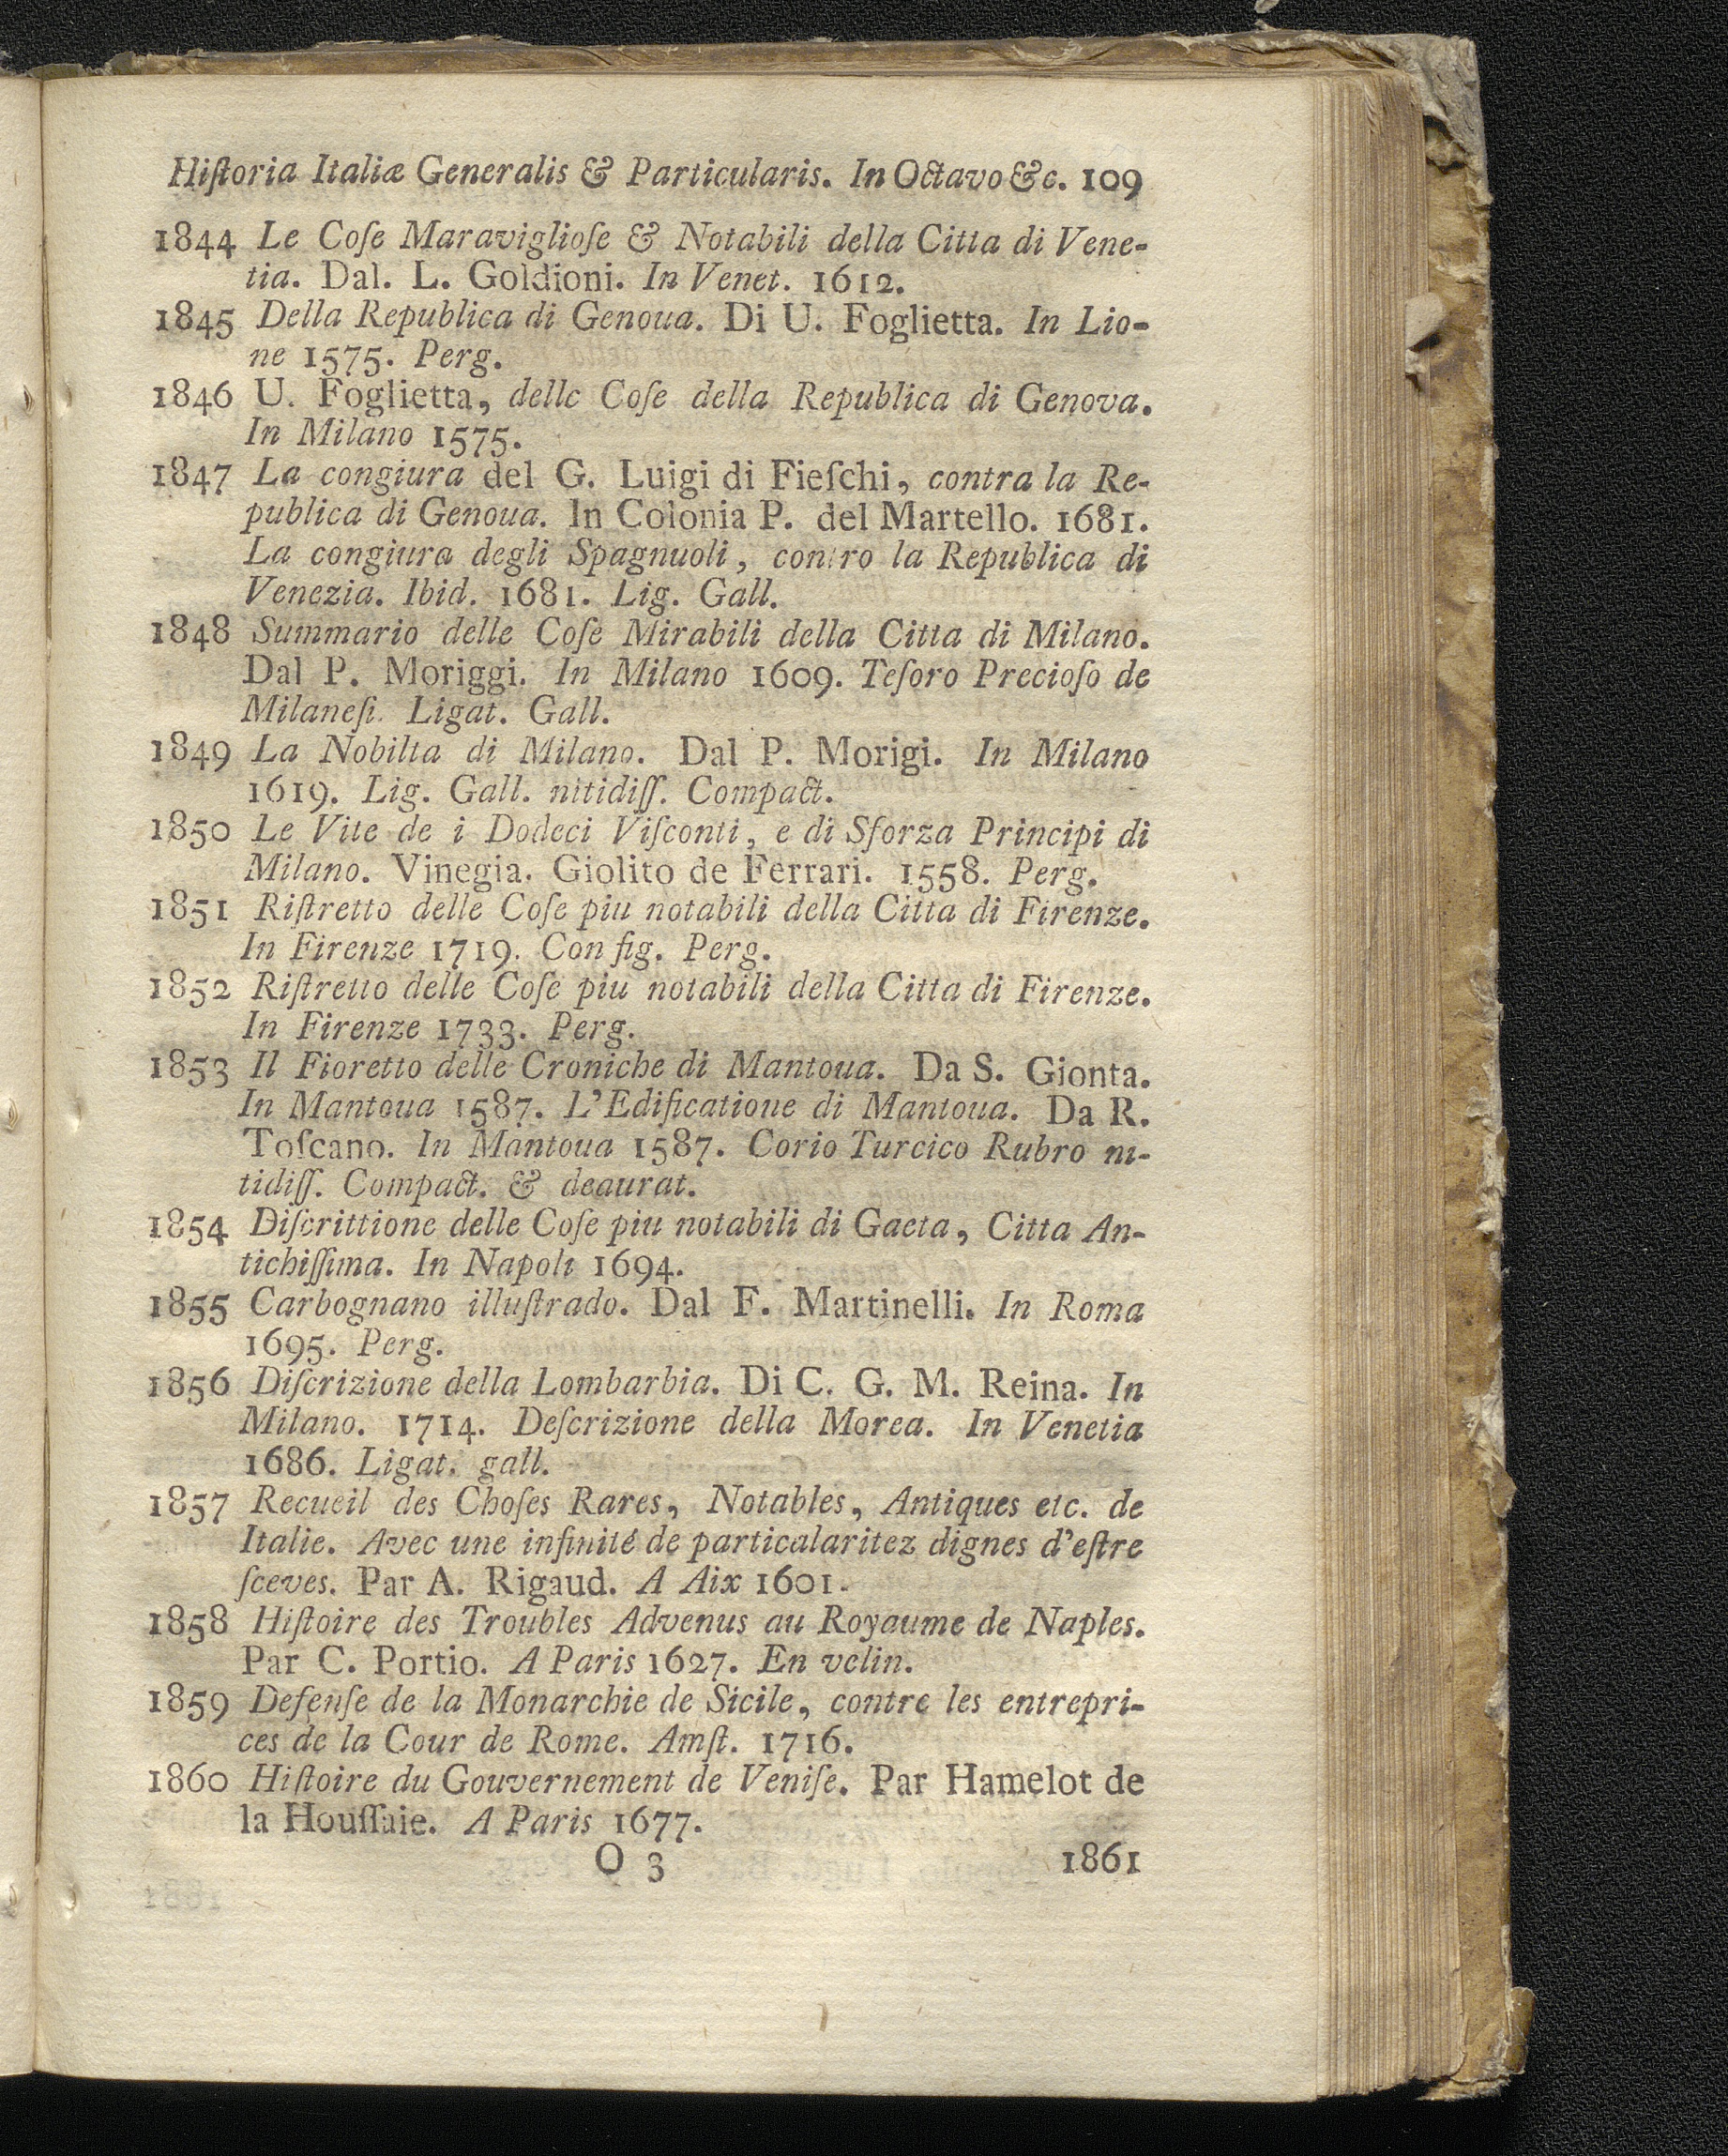 Hiſtoria Italiæ Generalis & Particularis. In Octavo &c. 109
1844 Le Coſe Maraviglioſe & Notabili della Citta di Vene-
tia. Dal. L. Goldioni. In Venet. 1612.
1845 Della Republica di Genoua. Di U. Foglietta. In Lio-
ne 1575. Perg.
1846 U. Foglietta, delle Coſe della Republica di Genova.
In Milano 1575.
1847 La congiura del G. Luigi di Fieſchi, contra la Re-
publica di Genoua. In Colonia P. del Martello. 1681.
La congiura degli Spagnuoli, contro la Republica di
Venezia. Ibid. 1681. Lig. Gall.
1848 Summario delle Coſe Mirabili della Citta di Milano.
Dal P. Moriggi. In Milano 1609. Teſoro Precioſo de
Milaneſi. Ligat. Gall.
1849 La Nobilta di Milano. Dal P. Morigi. In Milano
1619. Lig. Gall. nitidiſſ. Compact.
1850 Le Vite de i Dodeci Viſconti, e di Sforza Principi di
Milano. Vinegia. Giolito de Ferrari. 1558. Perg.
1851 Riſtretto delle Coſe piu notabili della Citta di Firenze.
In Firenze 1719. Con fig. Perg.
1852 Riſtretto delle Coſe piu notabili della Citta di Firenze.
In Firenze 1733. Perg.
1853 Il Fioretto delle Croniche di Mantoua. Da S. Gionta.
In Mantoua 1587. L'Edificatione di Mantoua. Da R.
Toſcano. In Mantoua 1587. Corio Turcico Rubro ni-
tidiſſ. Compact. & deaurat.
1854 Diſcrittione delle Coſe piu notabili di Gaeta, Citta An-
tichiſſima. In Napoli 1694.
1855 Carbognano illuſtrado. Dal F. Martinelli. In Roma
1695. Perg.
1856 Diſcrizione della Lombarbia. Di C. G. M. Reina. In
Milano. 1714. Deſcrizione della Morea. In Venetia
1686. Ligat. gall.
1857 Recueil des Choſes Rares, Notables, Antiques etc. de
Italie. Avec une infinité de particalaritez dignes d'eſtre
ſceves. Par A. Rigaud. A Aix 1601.
1858 Hiſtoire des Troubles Advenus au Royaume de Naples.
Par C. Portio. A Paris 1627. En velin.
1859 Defenſe de la Monarchie de Sicile, contre les entrepri-
ces de la Cour de Rome. Amſt. 1716.
1860 Hiſtoire du Gouvernement de Veniſe. Par Hamelot de
la Houſſaie. A Paris 1677.
O 3 1861